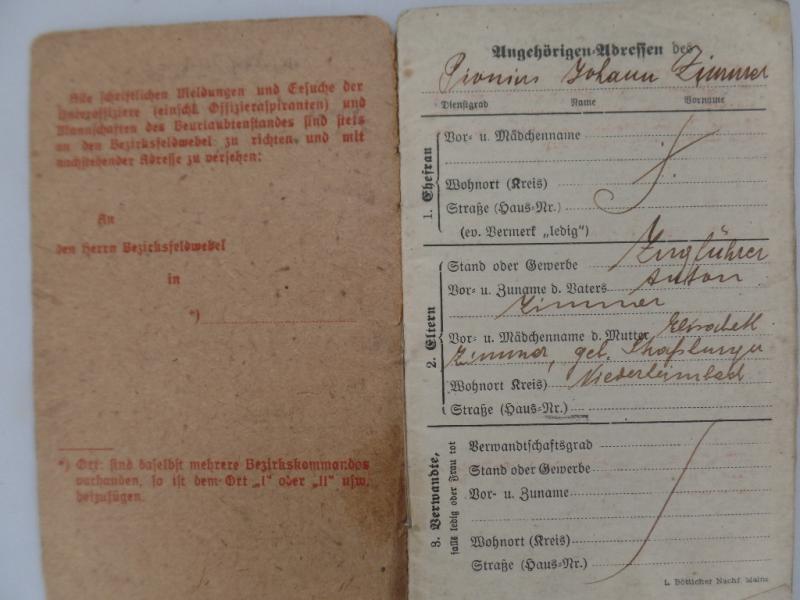 Alle schriftlichen Meldungen und Gesuche der
Unteroffiziere (einschl. Offizieraspiranten) und
Mannschaften des Beurlaubtenstandes sind stets
an den Bezirksfeldwebel zu richten und mit
nachstehender Adresse zu versehen:
An
den Herrn Bezirksfeldwebel
in
*)
*) Ort: sind daselbst mehrere Bezirkskommandos
vorhanden, so ist dem Ort „I" oder „II" usw.
beizufügen.
Angehörigen-Adressen des
Pionier Johann Zimmer
Dienstgrad Name Vorname
1. Ehefrau
Vor- u. Mädchenname
Wohnort (Kreis)
Straße (Haus-Nr.)
(ev. Vermerk „ledig")
2. Eltern
Stand oder Gewerbe Zugführer
Vor- u. Zuname d. Vaters Anton
Zimmer
Vor- u. Mädchenname d. Mutter Elisabeth
Zimmer, geb.
Wohnort Kreis)
Straße (Haus-Nr.)
3. Verwandte,
falls ledig oder Frau tot
Verwandtschaftsgrad
Stand oder Gewerbe
Vor- u. Zuname
Wohnort (Kreis)
Straße (Haus-Nr.)
L. Bötticher Nachf. Mainz